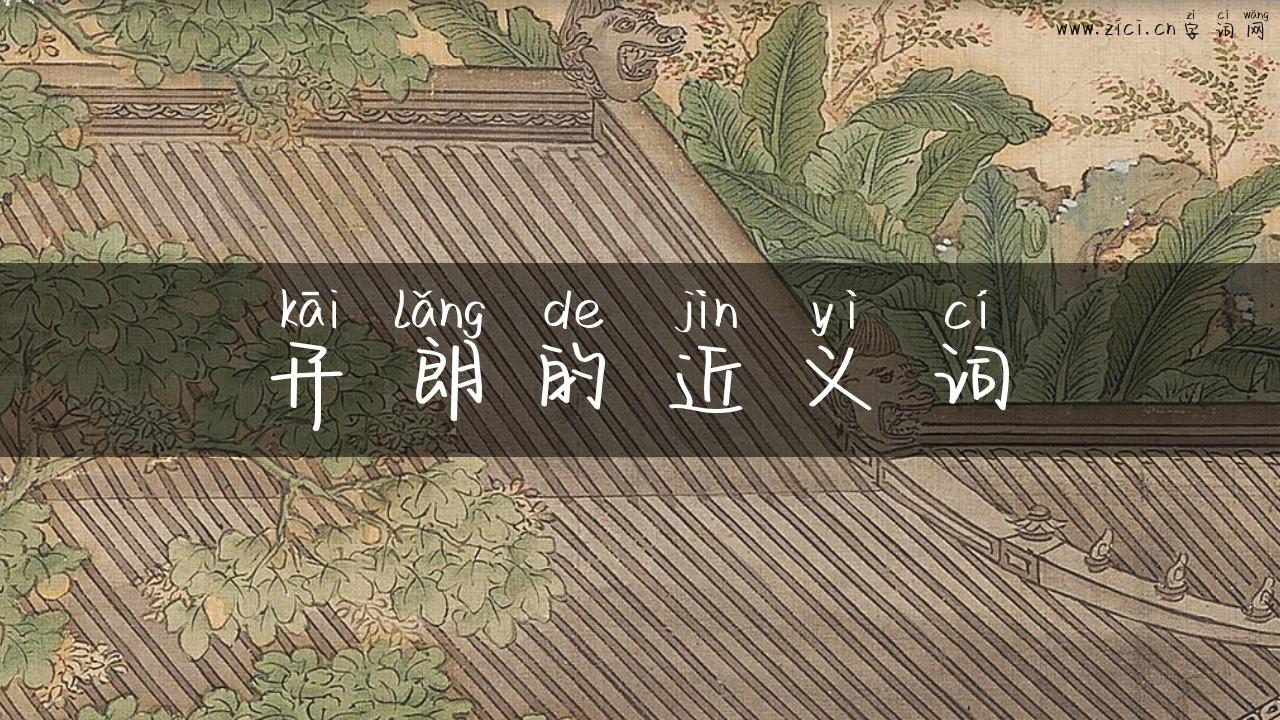 zì cí wǎng
www.zici.cn 字词网
kāi lǎng de jìn yì cí
开朗的近义词